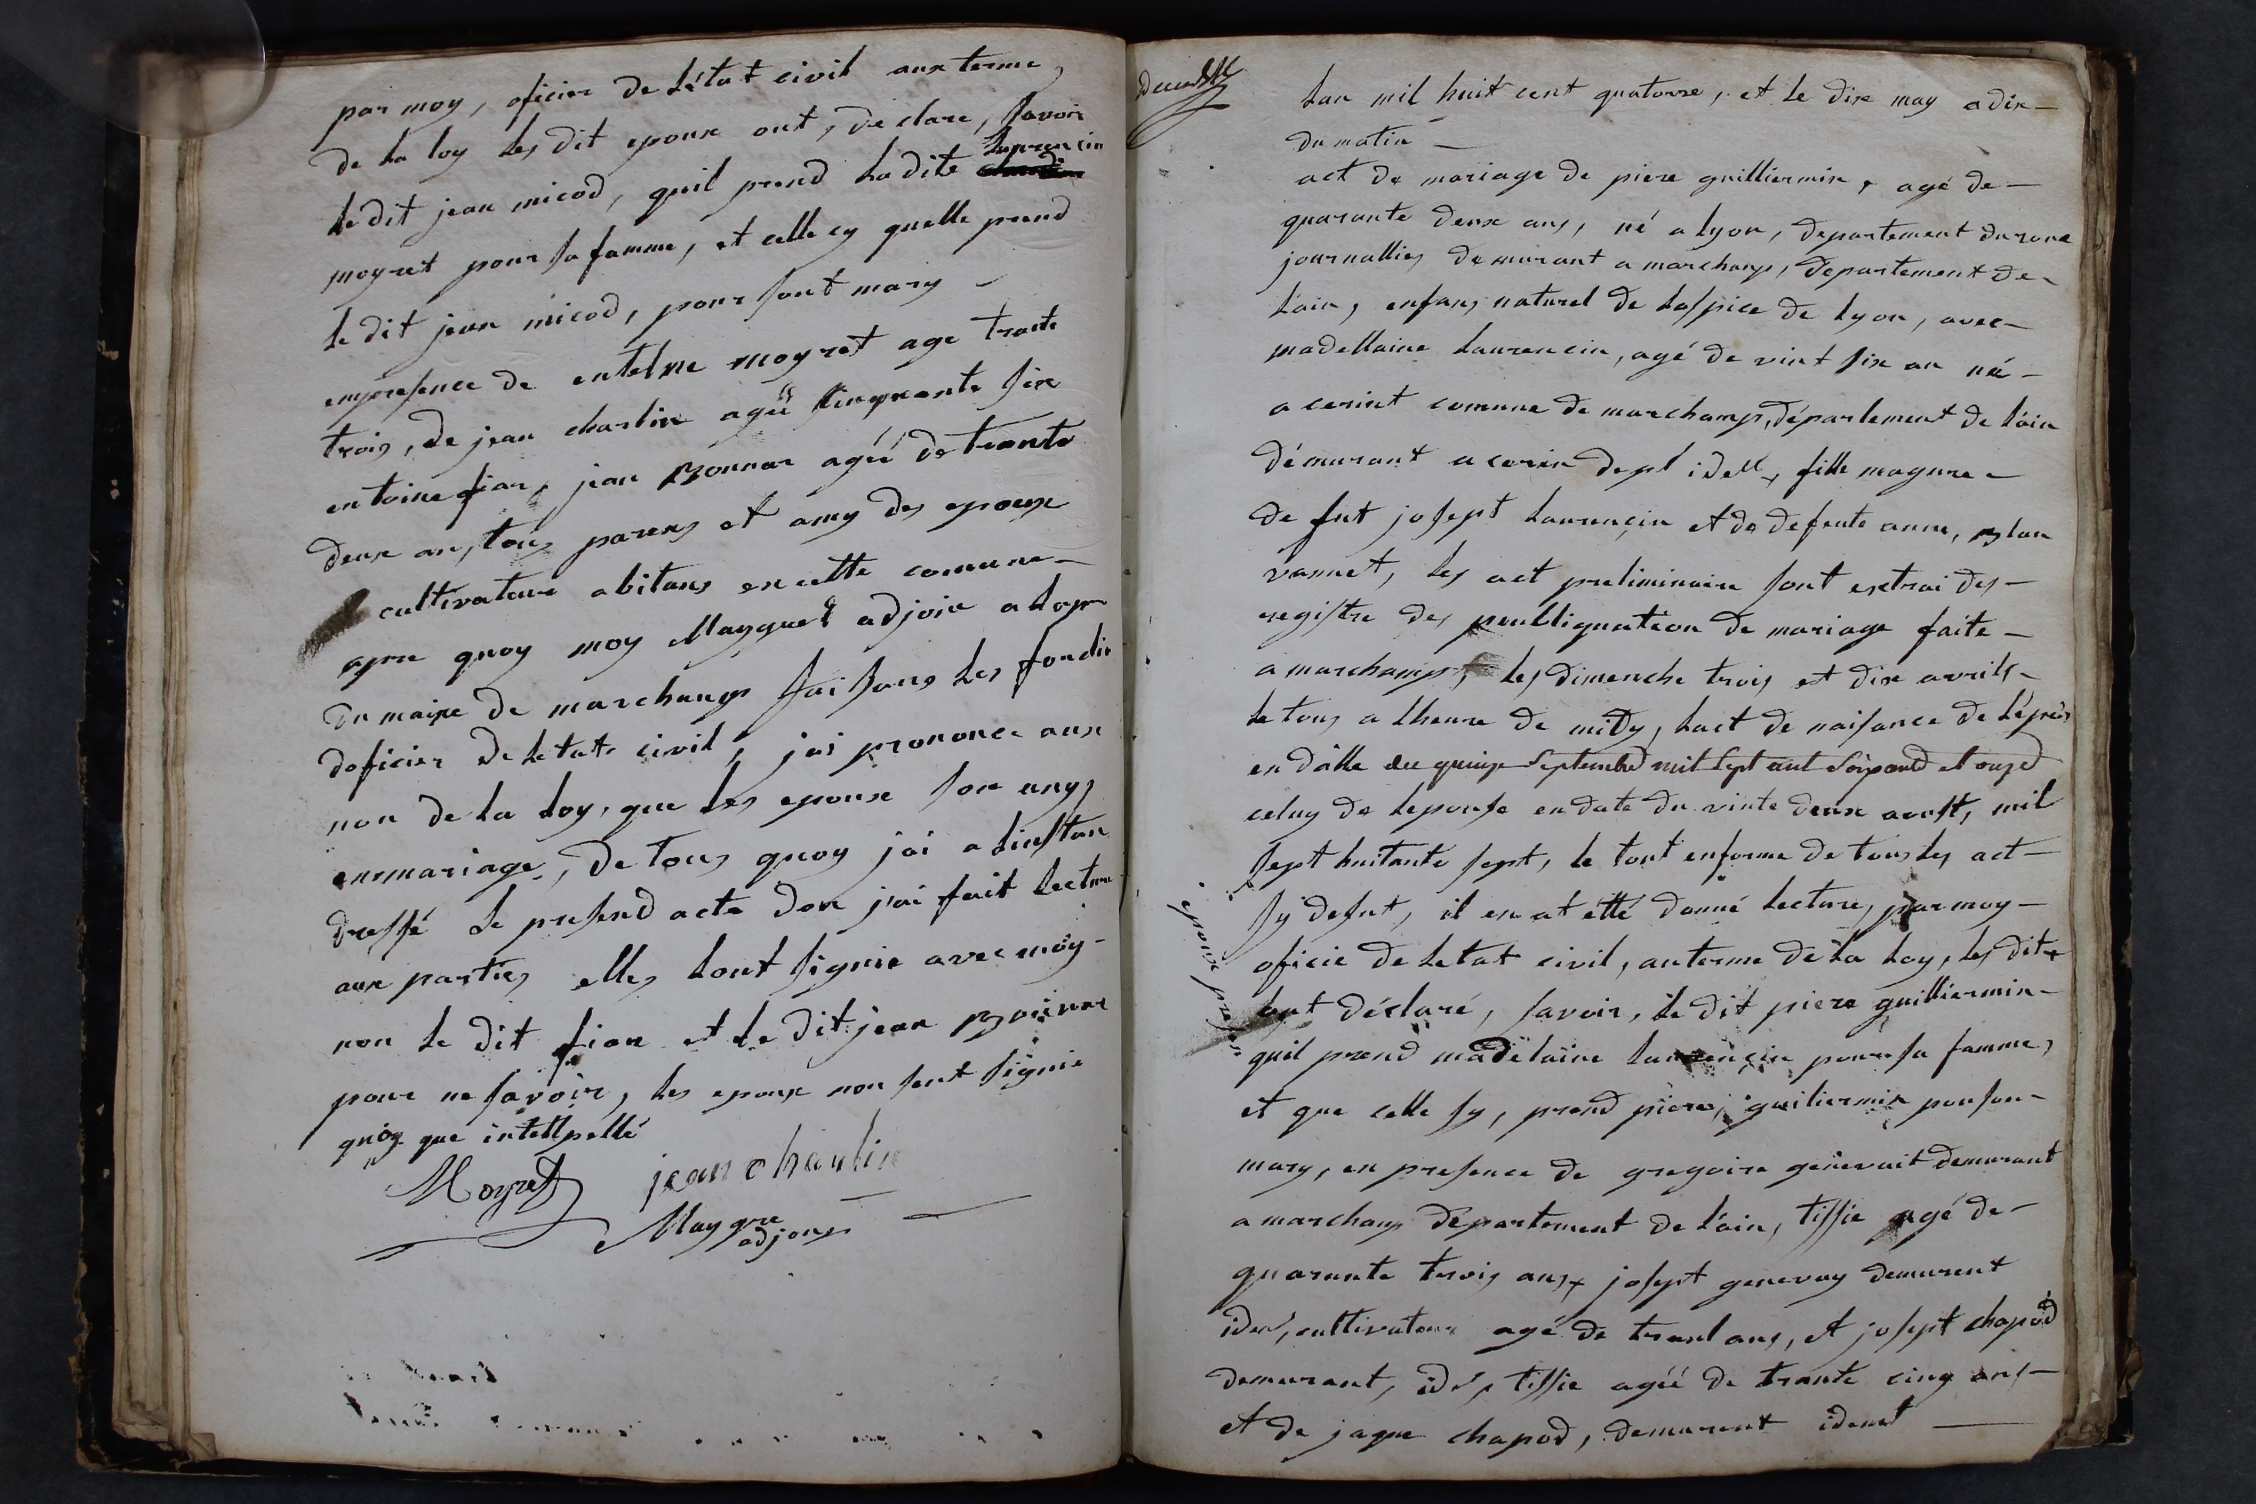 par moy, oficier de l'état civil aux terme
de la loy les dit epoux ont, déclare, savoir
le dit jean micod, quil prend ladite laurencin
moyret pour sa famme, et celle cy quelle prend
le dit jean micod, pour sont mary -
enpresence de entelme moyret age trante
trois, de jean charlin ageé sinquante six
entoine fian, jean Bonnar ageé de trante
deux an, tous parens et amy des epoux
cultivateur abitans en cette comune -
apre quoy moy Maygret adjoin a la
du maire de marchamps faisans les fonctio
doficier de letate civil, jai prononce aux
non de la loy, que les epoux son unys
enmariage, De tous quoy jai a linstan
dressé le presend acte don jai fait lecture
aux parties elles lont signie avec moy -
non le dit fian et le dit jean Boinnar
pour ne savoir, les epoux non sent signie
quoy que intellpellé
Moyret jean charlin
Maygre
adjoint
Lan mil huit cent quatorze, et le dix may a dix -
du matin -
act de mariage de piere guilliermin, agé de -
quarante deux ans, né a lyon, departement du rone
journallies demurant a marchamp, departement de -
lain, enfans naturel de lospice de lyon, avec -
madellaine laurencin, agé de vint six an né -
a cerint comune de marchamps, département de l'ain
démurant a cerin dept idem, fille mayure -
de fut josept laurençin et de defente anne, Blan
vannet, les act preliminaire sont extrai des -
registre des peubliquation de mariage faite -
a marchamps, les dimenche trois et dix avrils -
le tous a lheure de midy, lact de naisance de l'épous
en datte du quinze septembre mil sept cent soixante et onze
celuy de lepouse endate du vinte deux aoust, mil
sept huitante sept, le tout enforme de tous les act -
sy defut, il en at etté donné lecture, par moy -
oficie de letat civil, auterme de la loy, les dits
epoux presens
ont déclaré, savoir, le dit piere guilliermin -
quil prend madelaine laurençin pour sa famme,
et que celle sy, prend piere, guiliermin pouson -
mary, en presence de gregoire genevait demurant
a marchamp departement de l'ain, tissie agé de -
quarante trois ans, josept genevay demurent
idem, cultivateur agé de trant ans, et josept chapod
demurant, idem, tissie ageé de trante cinq ans -
et de jaque chapod, demurent idemt